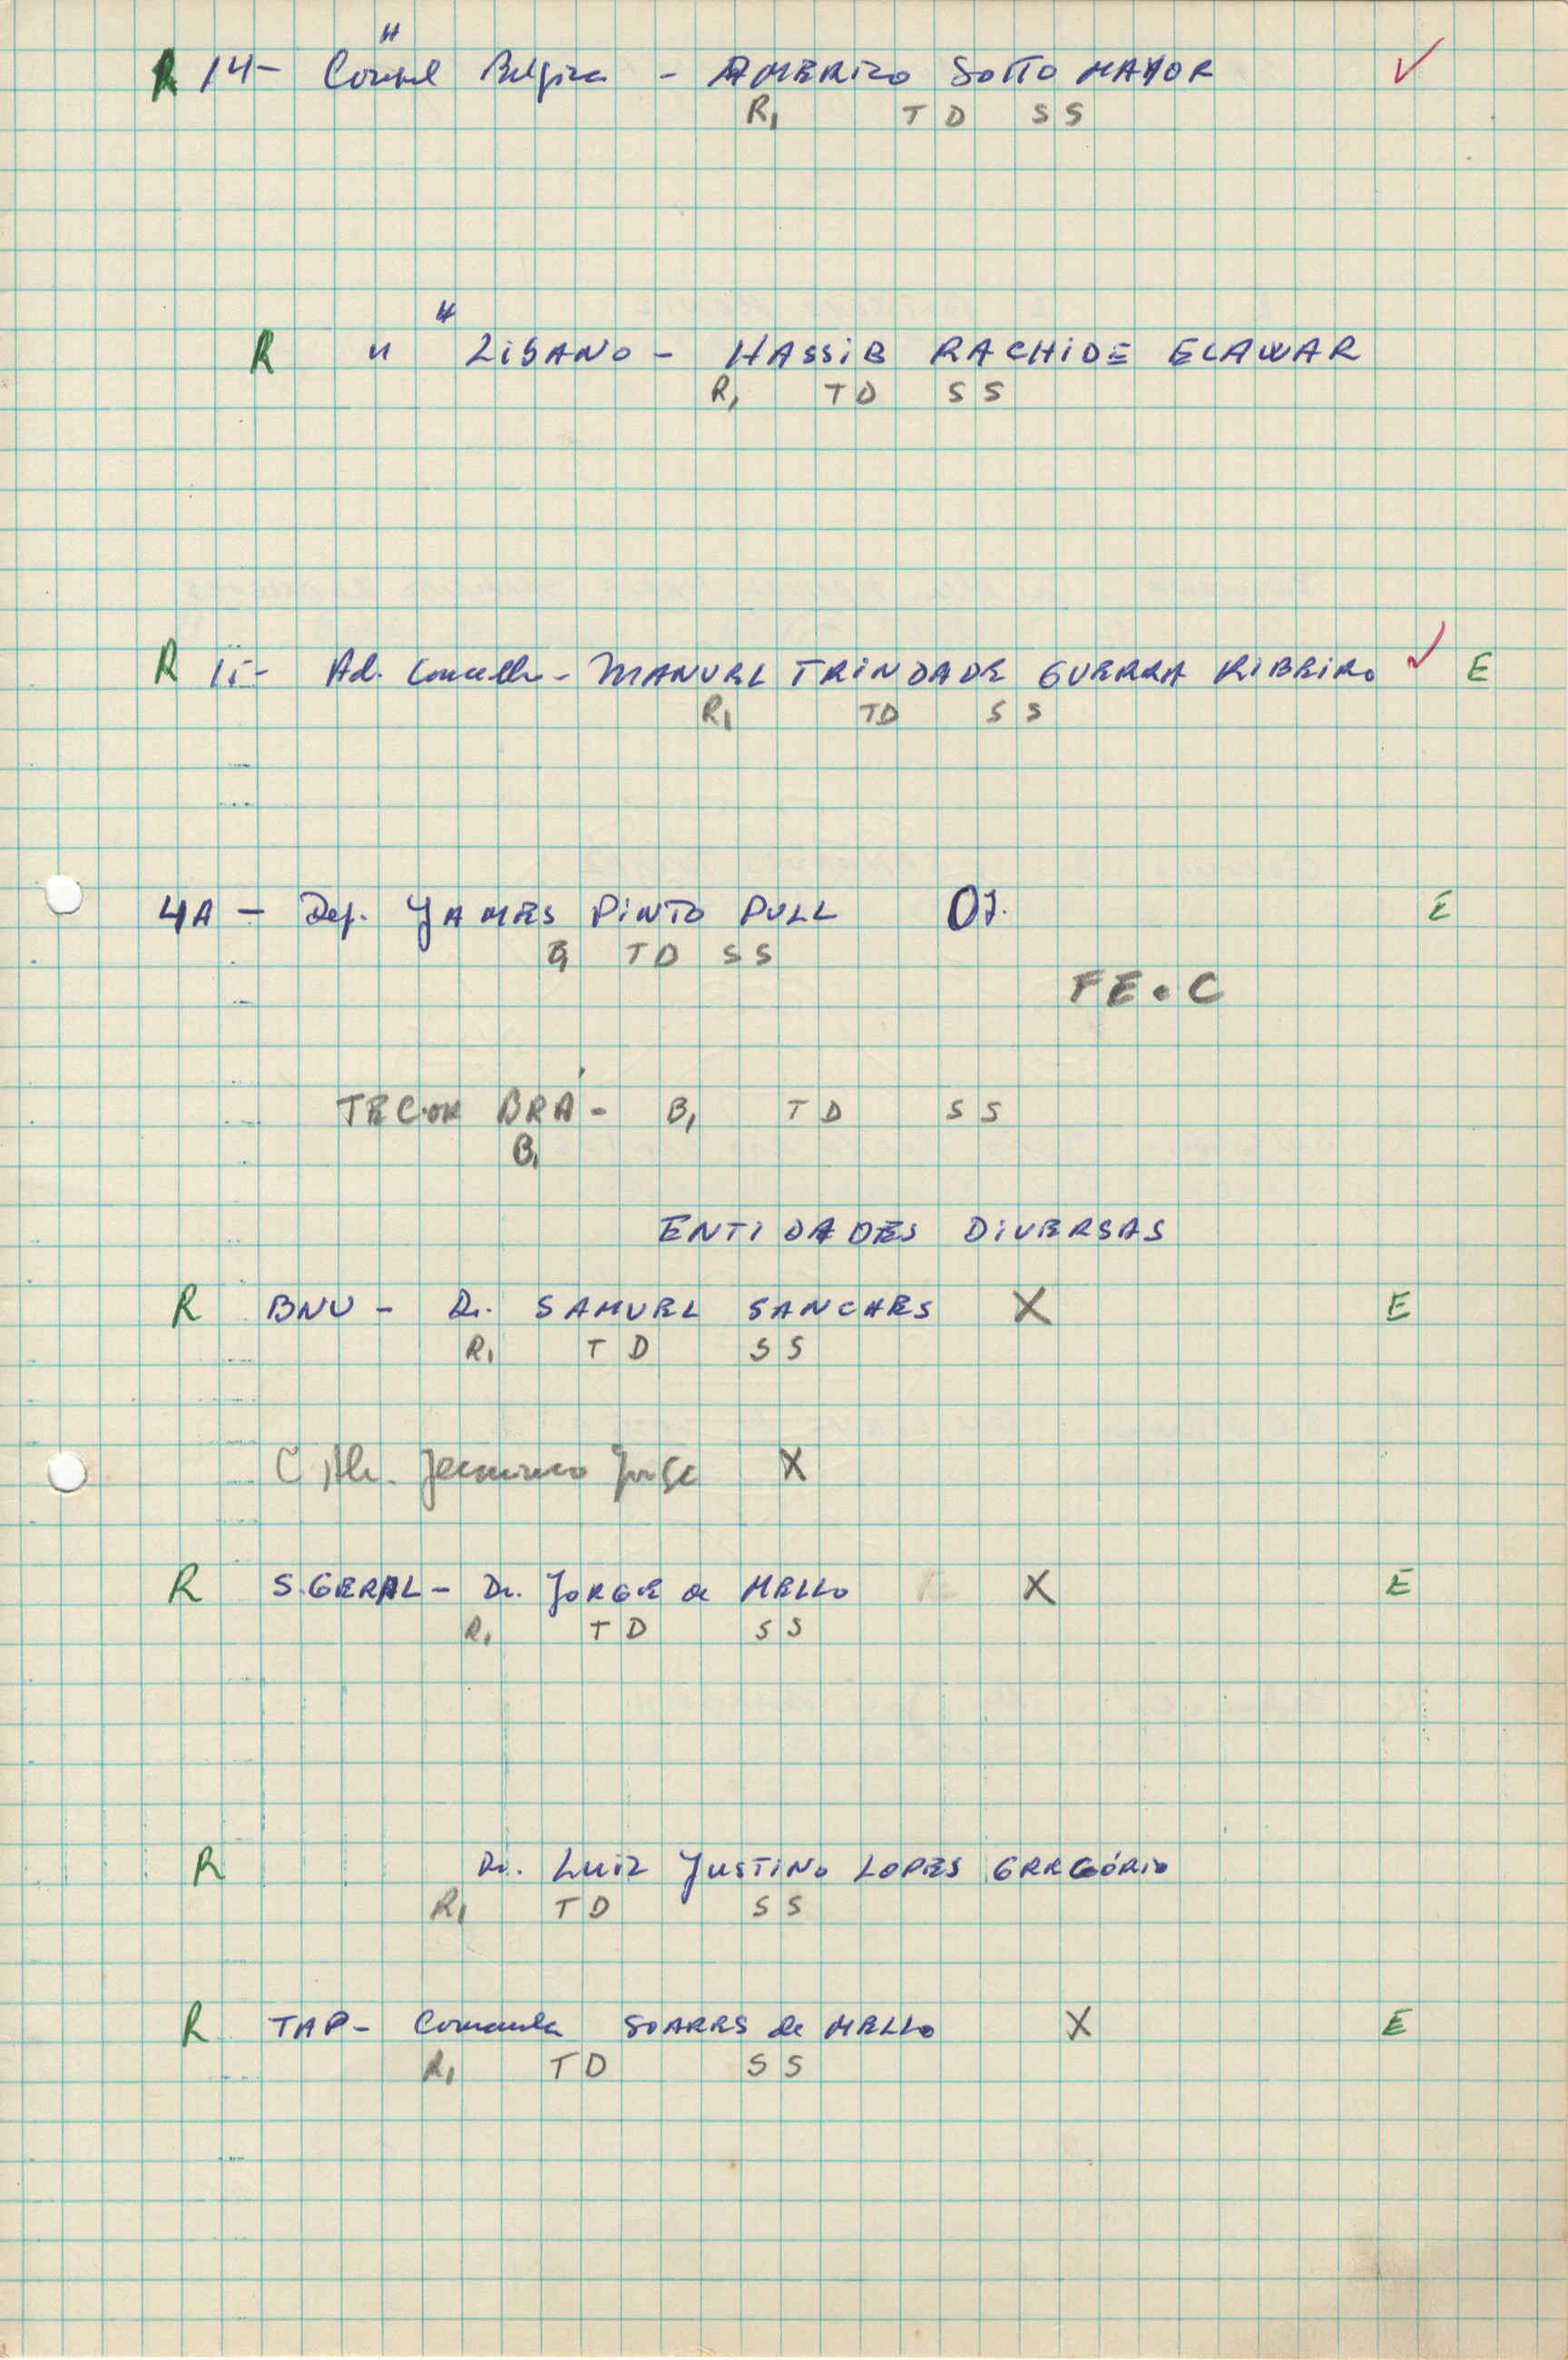 "
R 14- Consul Belgica - AMERICO SOTTO MAYOR ✓
R, T D S S
"
R " LIBANO - HASSIB RACHIDE ELAWAR
R, T D S S
R 15- Ad. Concelho - MANUEL TRINDADE GUERRA RIBEIRO ✓ E
R, TD S S
4A - Dep. JAMES PINTO PULL OJ. E
B, T D S S
FE.C
TEC.OR BRÁ - B, T D S S
B,
ENTIDADES DIVERSAS
R BNU - Dr. SAMUEL SANCHES X E
R, T D S S
Jorge X
R S.GERAL - Dr. JORGE de MELLO X E
R, T D S S
R Dr. LUIZ JUSTINO LOPES GREGÓRIO
R, T D S S
R TAP - SOARES de MELLO X E
R, T D S S